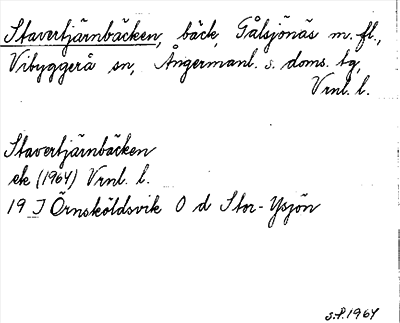 Stavertjärnbäcken, bäck, Gålsjönäs m.fl.,
Vibyggerå sn, Ångermanl. s. doms. tg,
Vrnl. l.
Stavertjärnbäcken
ek (1964) Vrnl. l.
19 J Örnsköldsvik O d Stor-Ysjön
s.f. 1964